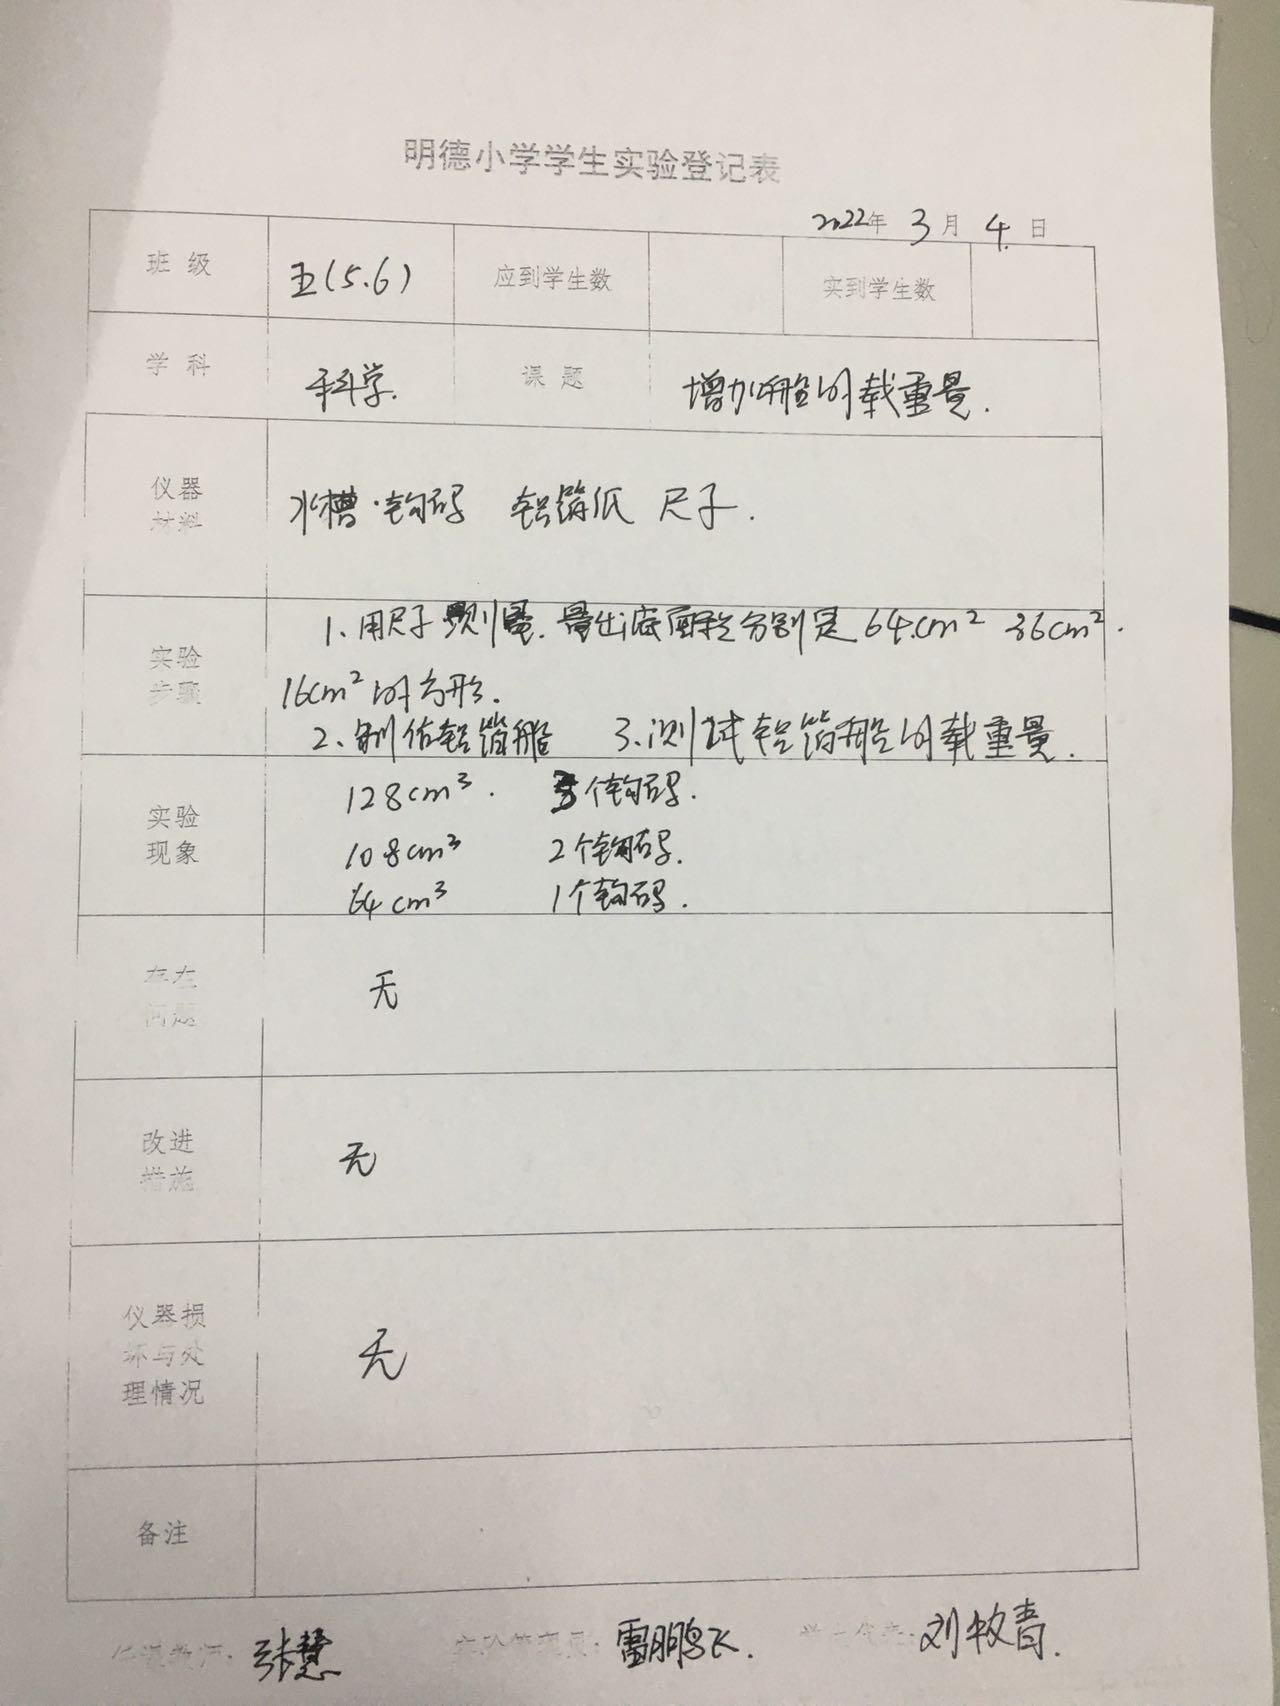 明德小学学生实验登记表
2022年 3月 4日
班级 五(5.6) 应到学生数 实到学生数
学科 科学. 课题 增加船的载重量.
仪器材料 水槽·钩码 铝箔纸 尺子.
实验步骤 1、用尺子测量.量出底面积分别是64cm² 36cm².
16cm²的方形.
2、制作铝箔船 3、测试铝箔船的载重量.
实验现象 128cm³. 个钩码.
108cm³ 2个钩码.
64cm³ 1个钩码.
存在问题 无
改进措施 无
仪器损坏与处理情况 无
备注
任课教师: 张慧 实验管理员: 雷鹏飞. 学生代表: 刘牧青.